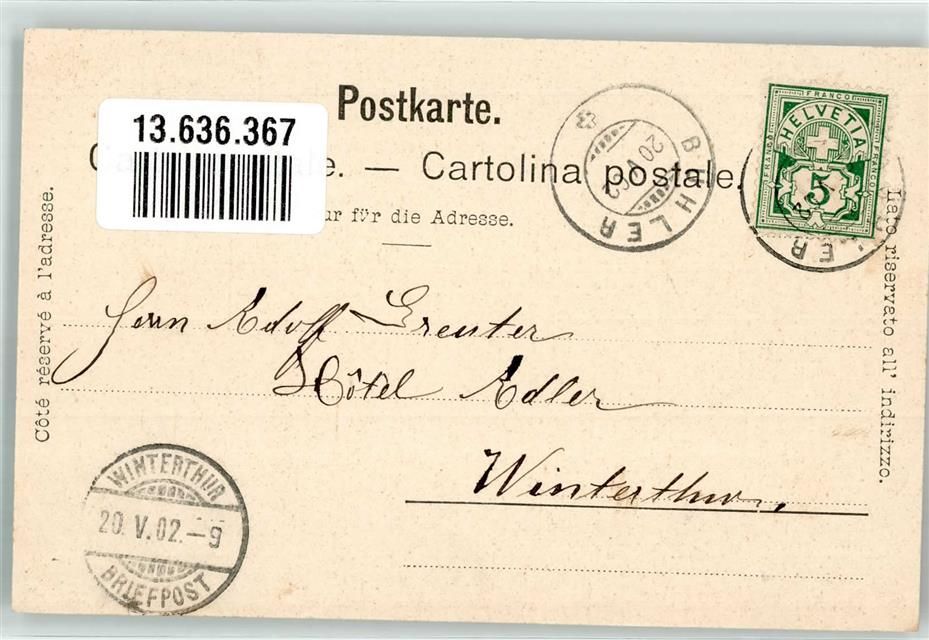 Postkarte.
13.636.367
— Cartolina postale.
für die Adresse.
Côté réservé à l'adresse.
Lato riservato all' indirizzo.
BÜHLER
20 V 02
FRANCO
FRANCO
FRANCO
HELVETIA
5
ER
Herrn Adolf Greuter
Hôtel Adler
Winterthur.
WINTERTHUR
20. V. 02.–9
BRIEFPOST